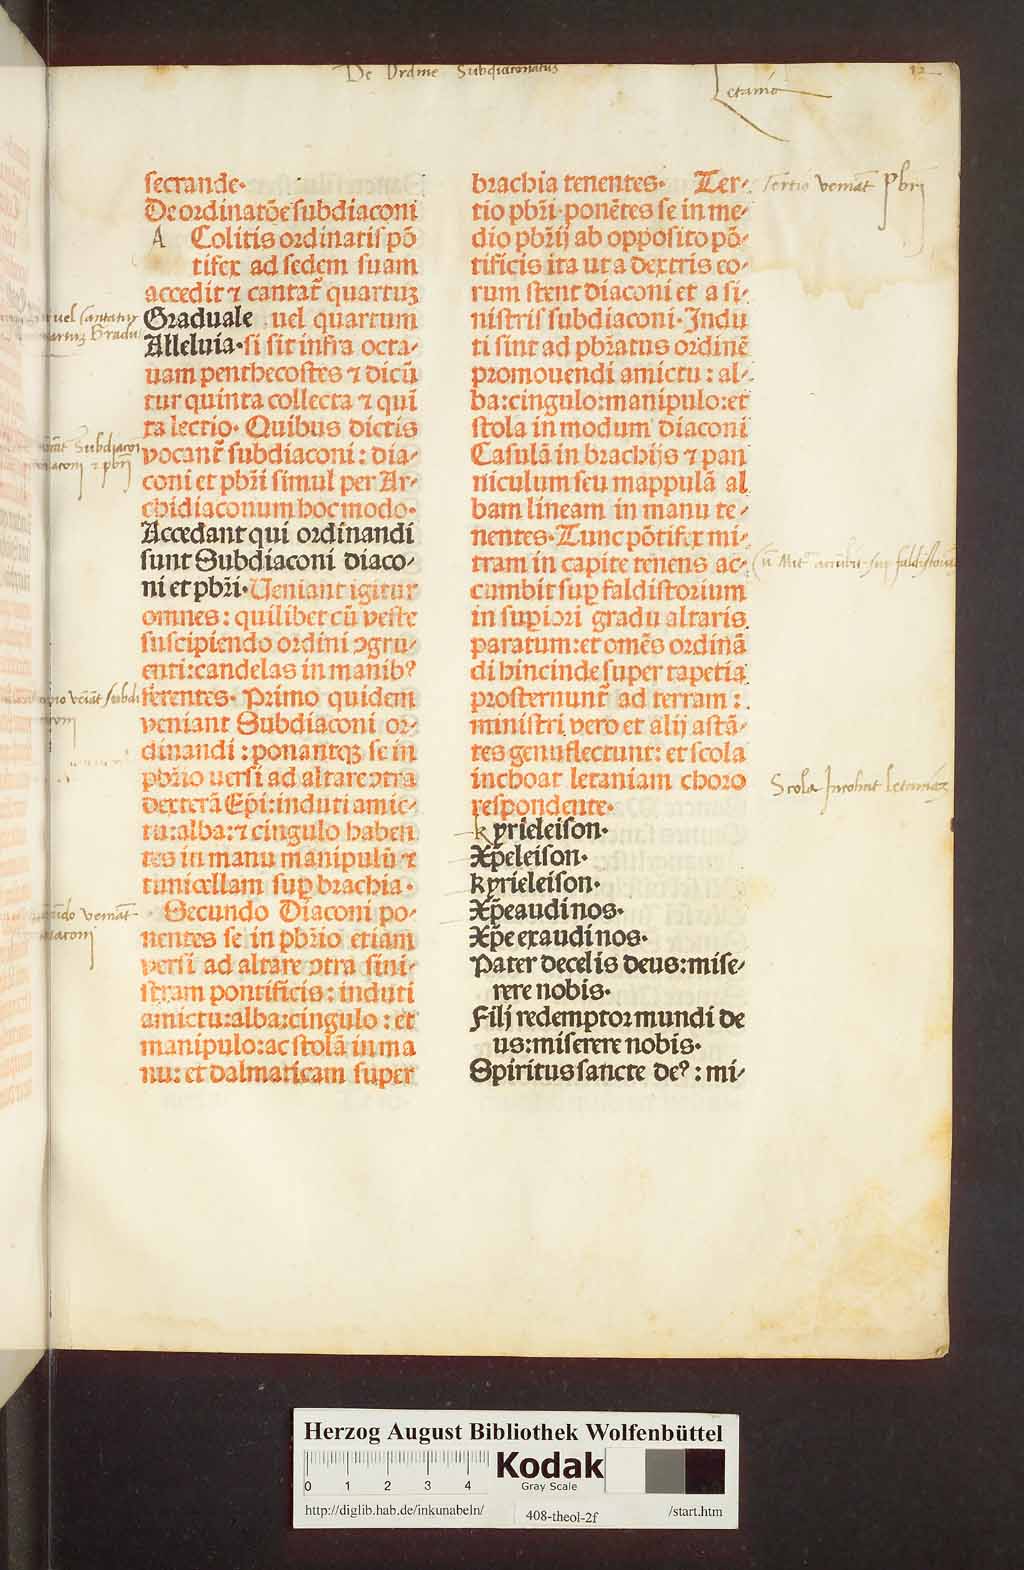 De Ordine Subdiaconatus
Letanio
12
secrande.
De ordinatõe subdiaconi
A Colitis ordinatis põ
tifex ad sedem suam
accedit ⁊ cantat᷑ quartuꝫ
Graduale uel quartum
Alleluia. si sit infra octa-
uam penthecostes ⁊ dicũ
tur quinta collecta ⁊ qui
ta lectio. Quibus dictis
vocant᷑ subdiaconi: dia-
coni et pbr̃i simul per Ar-
chidiaconum hoc modo.
Accedant qui ordinandi
sunt Subdiaconi diaco-
ni et pbr̃i. Ueniant igitur
omnes: quilibet cũ veste
suscipiendo ordini ↄgru-
enti: candelas in manibꝰ
ferentes. Primo quidem
veniant Subdiaconi or-
dinandi: ponantqꝫ se in
pbr̃io uersi ad altare ↄtra
dexterã Ep̃i: induti amic-
tu: alba: ⁊ cingulo haben
tes in manu manipulũ ⁊
tunicellam suꝑ brachia.
Secundo Diaconi po-
nentes se in pbr̃io etiam
versi ad altare ↄtra sini-
stram pontificis: induti
amictu: alba: cingulo: et
manipulo: ac stolã in ma
nu: et dalmaticam super
brachia tenentes. Ter-
tio pbr̃i ponẽtes se in me-
dio pbr̃ij ab opposito põ-
tificis ita ut a dextris eo-
rum stent diaconi et a si-
nistris subdiaconi. Indu
ti sint ad pbr̃atus ordinẽ
promouendi amictu: al-
ba: cingulo: manipulo: et
stola in modum diaconi
Casulã in brachijs ⁊ pan
niculum seu mappulã al
bam lineam in manu te-
nentes. Tunc põtifex mi-
tram in capite tenens ac-
cumbit suꝑ faldistorium
in suꝑiori gradu altaris
paratum: et omẽs ordinã
di hincinde super tapetia
prosternunt᷑ ad terram:
ministri vero et alij astã-
tes genuflectunt: et scola
inchoat letaniam choro
respondente.
kyrieleison.
Xp̃eleison.
kyrieleison.
Xp̃e audi nos.
Xp̃e exaudi nos.
Pater de celis deus: mise-
rere nobis.
Filj redemptor mundi de
us: miserere nobis.
Spiritus sancte deꝰ: mi-
uel Cantatur
Gradu
Subdiaconi
diaconi ⁊ pbr̃i
veniãt subdi
veniãt
diaconj
Tertio veniãt Pbrj
Scola Incohat letaniaꝫ
Herzog August Bibliothek Wolfenbüttel
0 1 2 3 4
Kodak
Gray Scale
http://diglib.hab.de/inkunabeln/
408-theol-2f
/start.htm